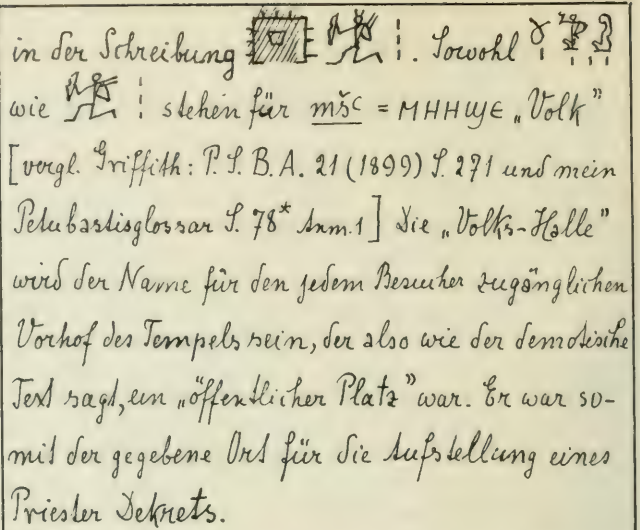 in der Schreibung . Sowohl
wie stehen für mšc = ⲘⲎⲎϢⲈ „Volk”
[vergl. Griffith: P. S. B. A. 21 (1899) S. 271 und mein
Petubastisglossar S. 78* Anm. 1] Die „Volks-Halle”
wird der Name für den jedem Besucher zugänglichen
Vorhof des Tempels sein, der also wie der demotische
Text sagt, ein „öffentlicher Platz” war. Er war so-
mit der gegebene Ort für die Aufstellung eines
Priester Dekrets.